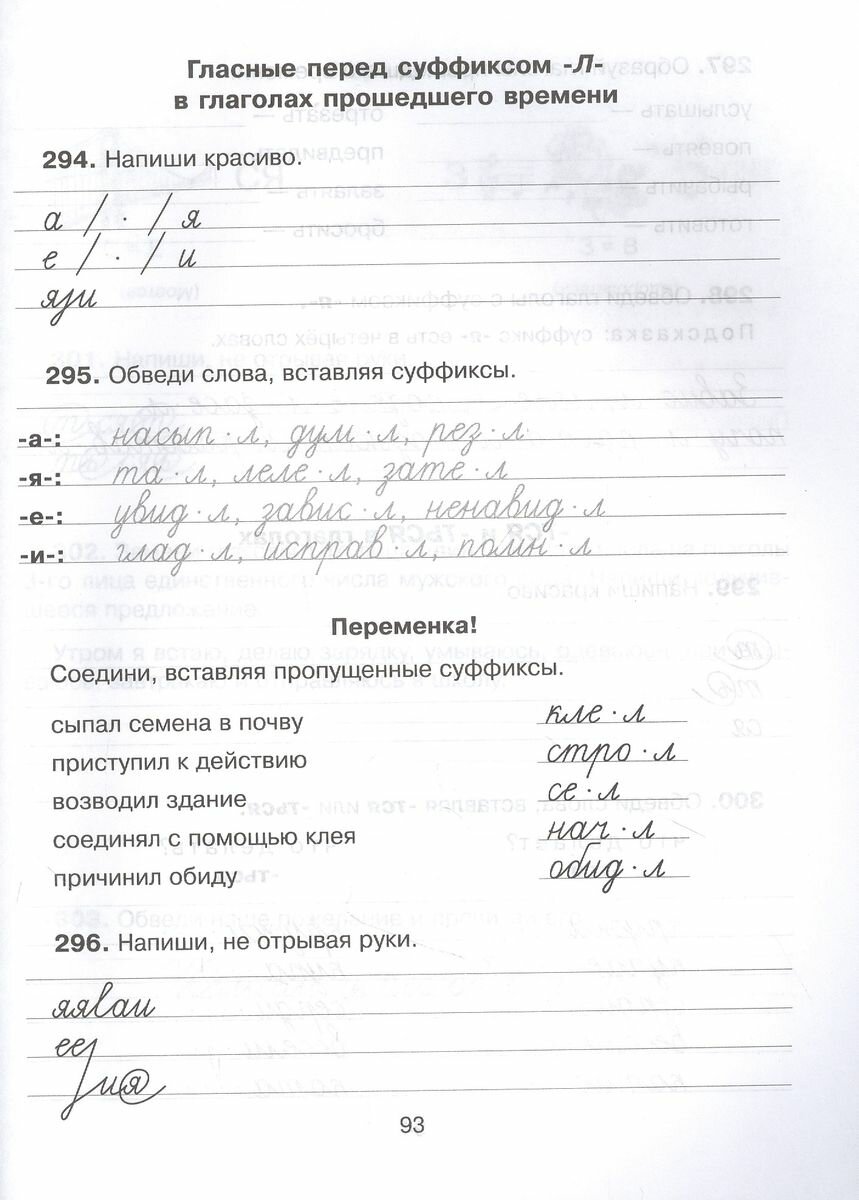 Гласные перед суффиксом -Л-
в глаголах прошедшего времени
294. Напиши красиво.
а / · / я
е / · / и
язи
295. Обведи слова, вставляя суффиксы.
-а-: насып · л, дум · л, рез · л
-я-: та · л, леле · л, зате · л
-е-: увид · л, завис · л, ненавид · л
-и-: глад · л, исправ · л, полин · л
Переменка!
Соедини, вставляя пропущенные суффиксы.
сыпал семена в почву кле · л
приступил к действию стро · л
возводил здание се · л
соединял с помощью клея нач · л
причинил обиду обид · л
296. Напиши, не отрывая руки.
93